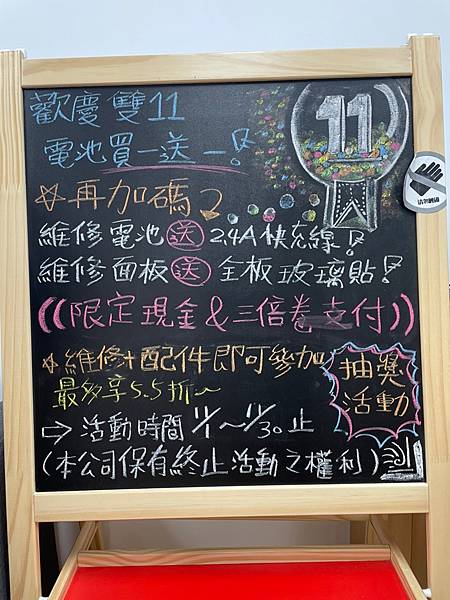 歡慶雙11
電池買一送一!
11
☆再加碼
維修電池送 2.4A快充線!
維修面板送 全板玻璃貼!
((限定現金&三倍卷支付))
☆維修+配件即可參加
最多享5.5折~
抽獎
活動
⇨ 活動時間 11/1~11/30止
(本公司保有終止活動之權利)
請勿觸碰